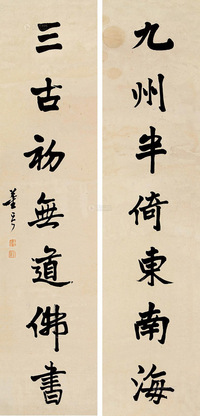 九州半倚東南海
三古初無道佛書